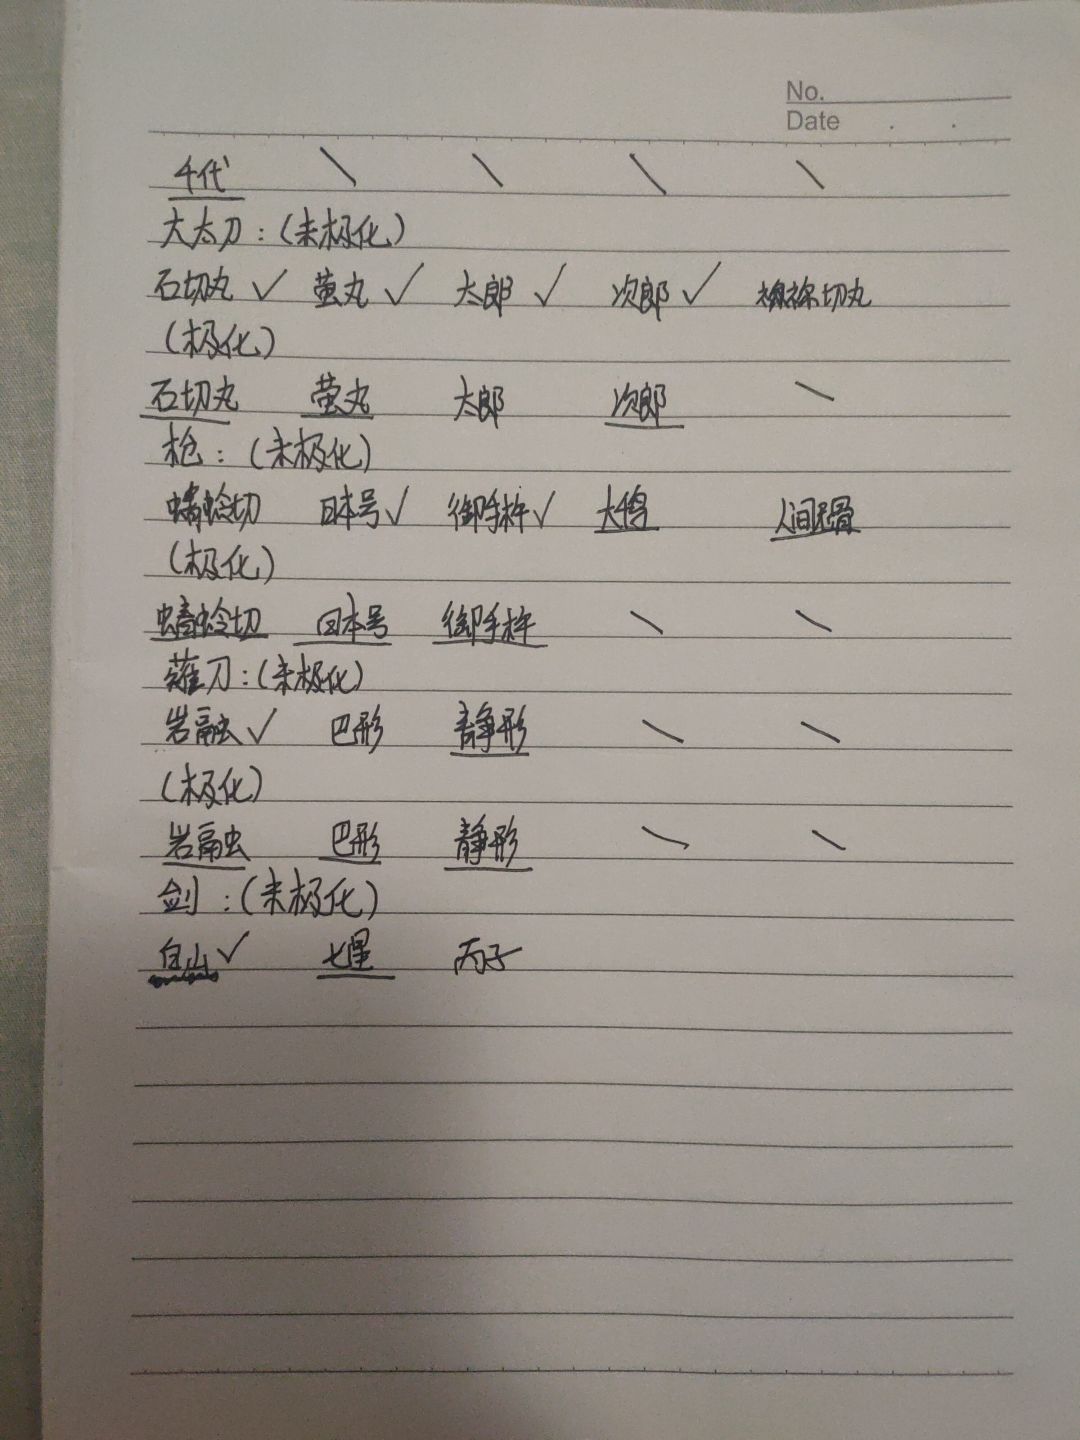 No.
Date . .
千代 \ \ \ \
大太刀：(未极化)
石切丸 ✓ 萤丸 ✓ 太郎 ✓ 次郎 ✓ 切丸
(极化)
石切丸 萤丸 太郎 次郎 \
枪：(未极化)
蜻蛉切 日本号 ✓ 御手杵 ✓ 大千鸟 人间无骨
(极化)
蜻蛉切 日本号 御手杵 \ \
薙刀：(未极化)
岩融 ✓ 巴形 静形 \ \
(极化)
岩融 巴形 静形 \ \
剑：(未极化)
白山 ✓ 七星 丙子